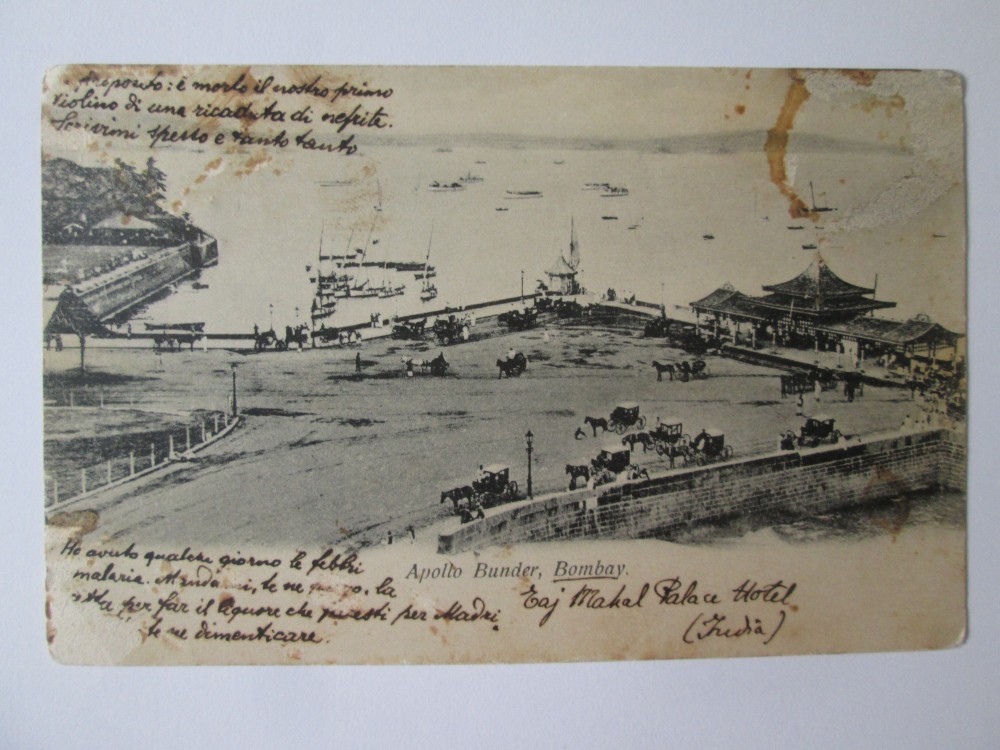 A proposito: è morto il nostro primo
violino di una ricaduta di nefrite.
Scrivimi spesso e tanto tanto
Ho avuto qualche giorno le febbri
malaria. te ne la
per far il liquore che questi per Madri
te ne dimenticare.
Apollo Bunder, Bombay.
Taj Mahal Palace Hotel
(India)